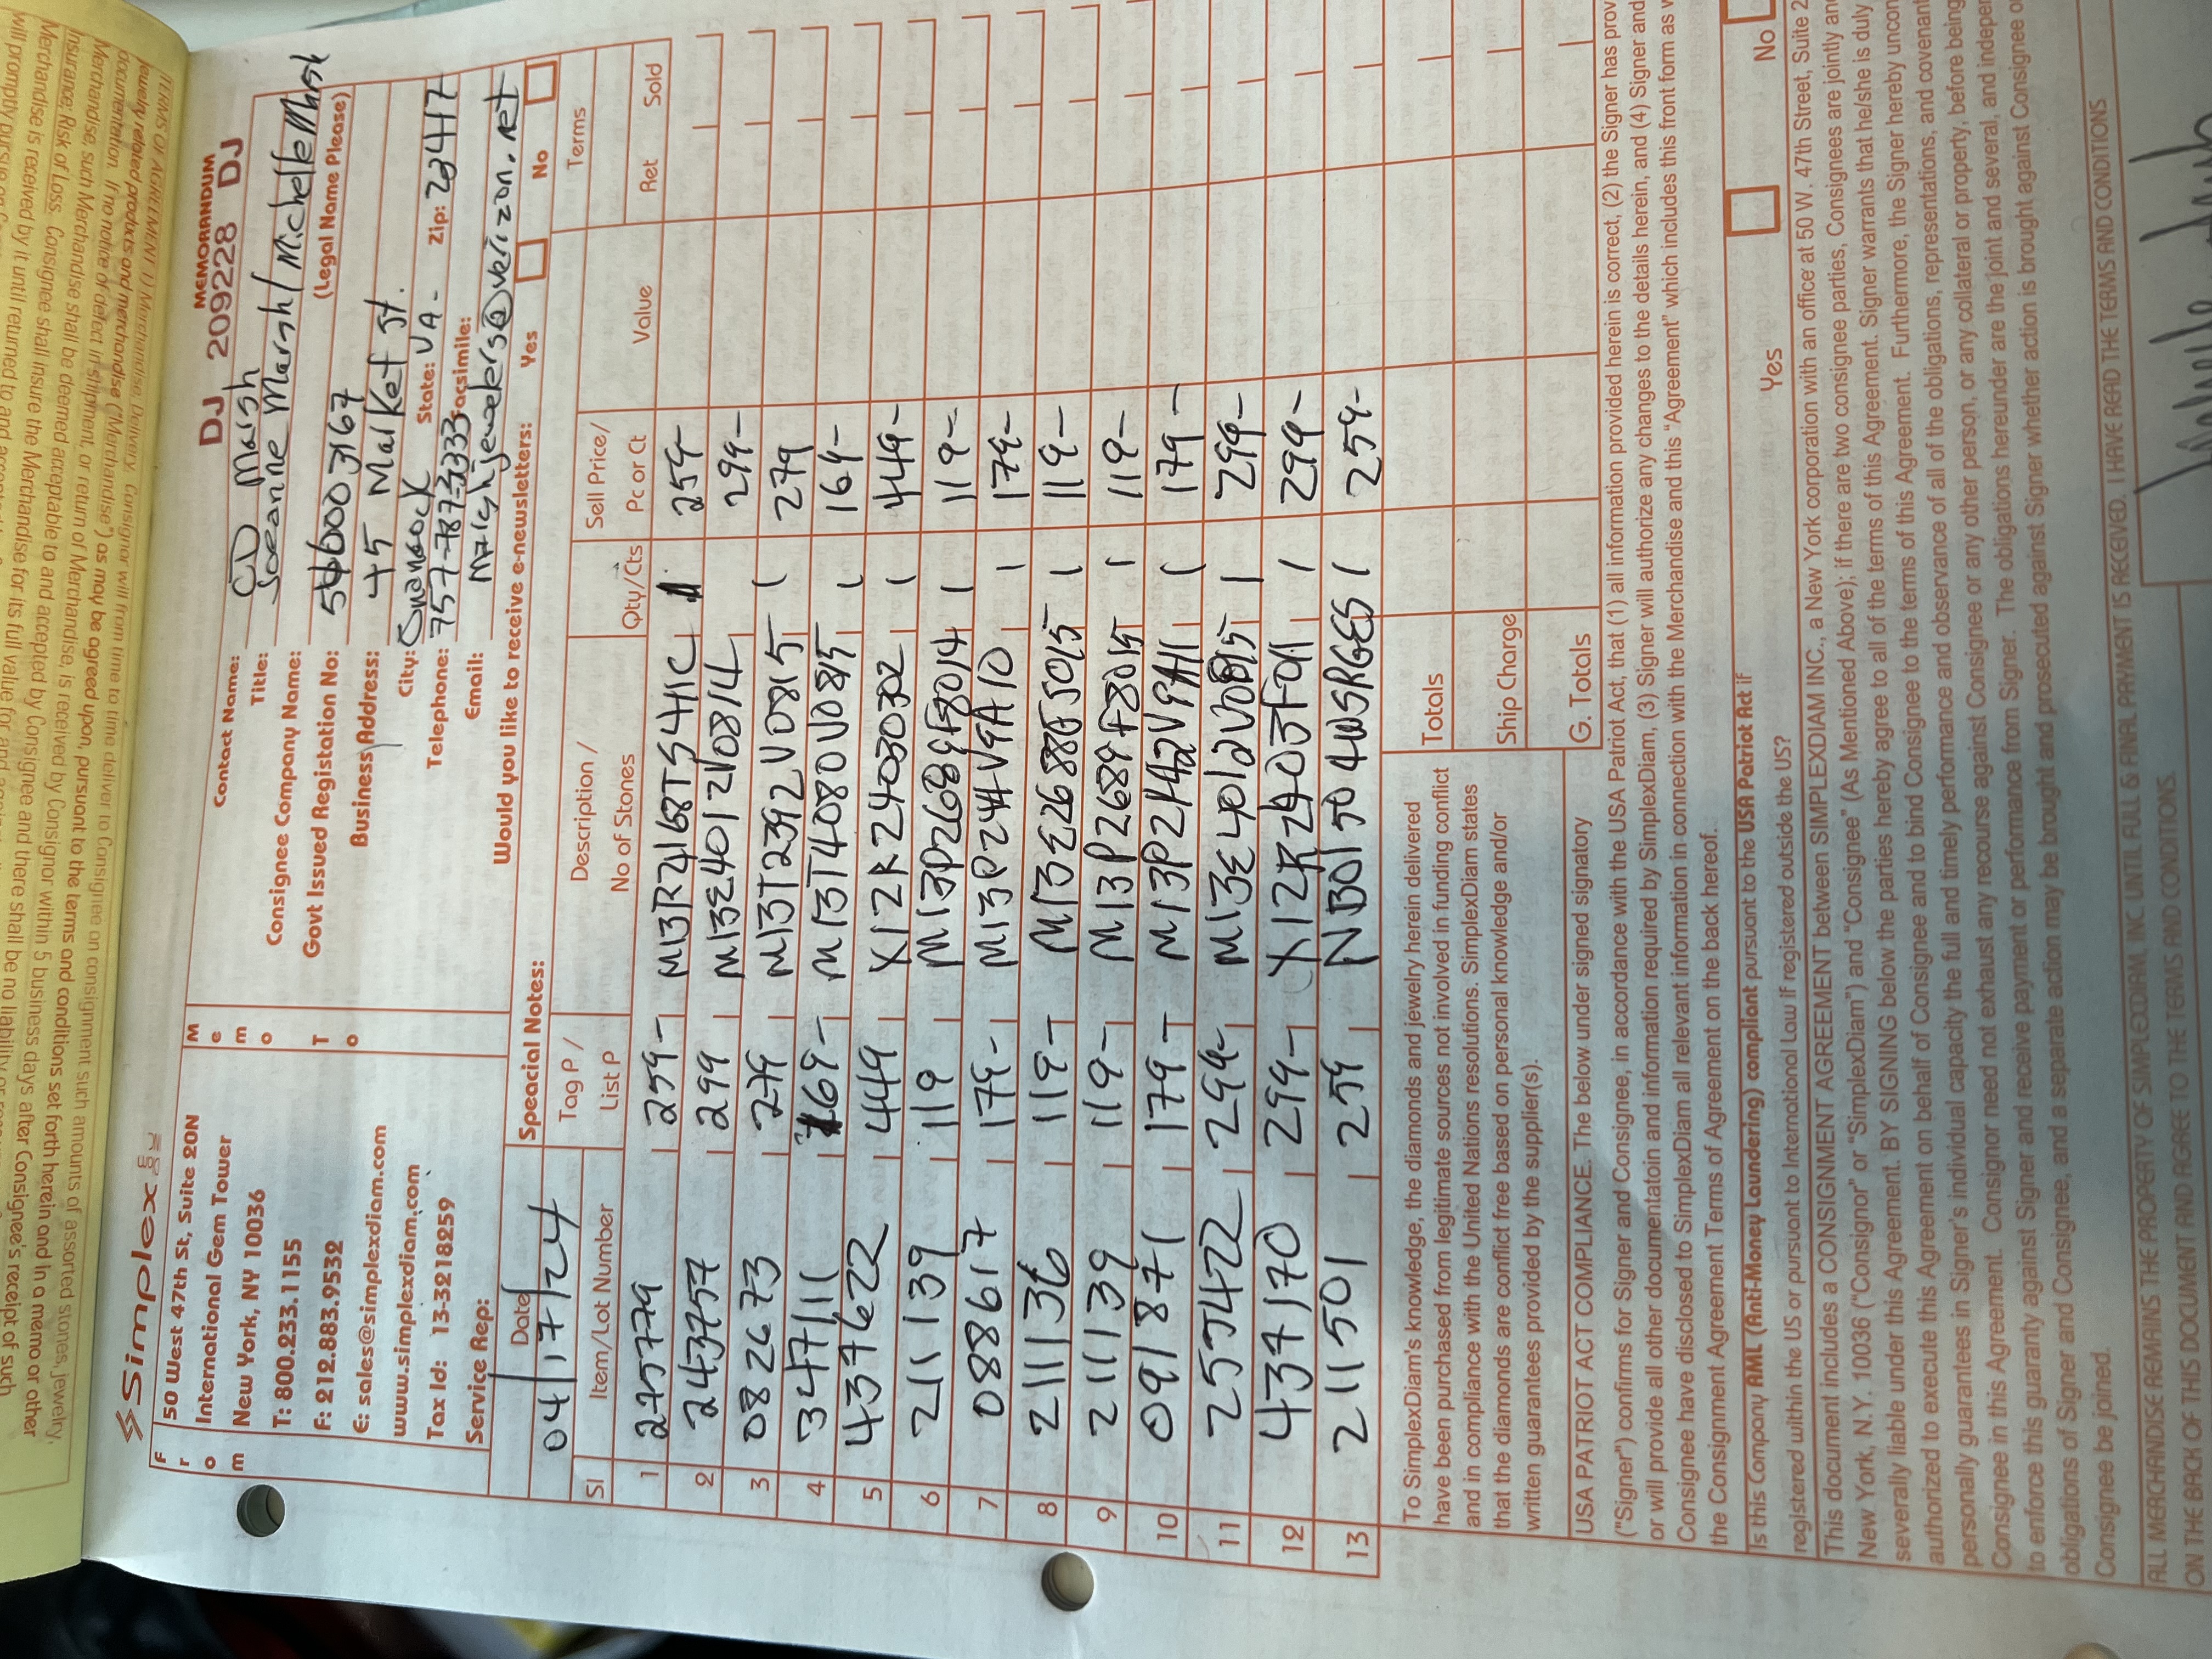 TERMS OF AGREEMENT
jewelry related products and merchandise ("Merchandise") as may be agreed upon, pursuant to the terms and conditions set forth herein and in a memo or other
documentation. If no notice of defect in shipment, or return of Merchandise, is received by Consignor within 5 business days after Consignee's receipt of such
Merchandise, such Merchandise shall be deemed acceptable to and accepted by Consignee and there shall be no liability
Insurance; Risk of Loss. Consignee shall insure the Merchandise for its full value for
Merchandise is received by it until returned to and
Simplex
MEMORANDUM
DJ 209228 DJ
From
50 West 47th St, Suite 20N
International Gem Tower
New York, NY 10036
T: 800.233.1155
F: 212.883.9532
E: sales@simplexdiam.com
www.simplexdiam.com
Tax Id: 13-3218259
Service Rep:
Memo
To
Contact Name: OD Marsh
Title: Joeanne Marsh / Michelle Marsh
Consignee Company Name: (Legal Name Please)
Govt Issued Registation No:
Business Address: 45 Market St.
City: Onancock State: VA- Zip: 23417
Telephone: 757-787-3333 Facsimile:
Email: marshjewelers@verizon.net
Would you like to receive e-newsletters: Yes No
Date
04/17/24
Speacial Notes:
Terms
Sl Item/Lot Number Tag P / List P Description / No of Stones Qty/Cts Sell Price/ Pc or Ct Value Ret Sold
1 225779 259- M13R2168TS41C 1 259-
2 243757 299 M13E4012V0814 299-
3 082673 279 M13T2392V0815 1 279
4 347111 169- M13T4080V0815 1 169-
5 437622 449 X12R24030302 1 449-
6 211139 119 M13P2689F8014 1 119-
7 088617 179- M13P244V9A10 1 179-
8 211136 119- M13E2688FJ015 1 119-
9 211139 119- M13P2689F8015 1 119-
10 091871 179- M13P2142V9A11 1 179-
11 255422 299- M13E4012V0815 1 299-
12 437170 299- X12R2403F011 1 299-
13 211501 259 NB01504WSRGES 1 259-
To SimplexDiam's knowledge, the diamonds and jewelry herein delivered
have been purchased from legitimate sources not involved in funding conflict
and in compliance with the United Nations resolutions. SimplexDiam states
that the diamonds are conflict free based on personal knowledge and/or
written guarantees provided by the supplier(s).
Totals
Ship Charge
G. Totals
USA PATRIOT ACT COMPLIANCE. The below under signed signatory
("Signer") confirms for Signer and Consignee, in accordance with the USA Patriot Act, that (1) all information provided herein is correct, (2) the Signer has prov
or will provide all other documentatoin and information required by SimplexDiam, (3) Signer will authorize any changes to the details herein, and (4) Signer and
Consignee have disclosed to SimplexDiam all relevant information in connection with the Merchandise and this "Agreement" which includes this front form as w
the Consignment Agreement Terms of Agreement on the back hereof.
Is this Company AML (Anti-Money Laundering) compliant pursuant to the USA Patriot Act if
registered within the US or pursuant to International Law if registered outside the US? Yes No
This document includes a CONSIGNMENT AGREEMENT between SIMPLEXDIAM INC., a New York corporation with an office at 50 W. 47th Street, Suite 2
New York, N.Y. 10036 ("Consignor" or "SimplexDiam") and "Consignee" (As Mentioned Above); if there are two consignee parties, Consignees are jointly and
severally liable under this Agreement. BY SIGNING below the parties hereby agree to all of the terms of this Agreement. Signer warrants that he/she is duly
authorized to execute this Agreement on behalf of Consignee and to bind Consignee to the terms of this Agreement. Furthermore, the Signer hereby uncon
personally guarantees in Signer's individual capacity the full and timely performance and observance of all of the obligations, representations, and covenant
Consignee in this Agreement. Consignor need not exhaust any recourse against Consignee or any other person, or any collateral or property, before being
to enforce this guaranty against Signer and receive payment or performance from Signer. The obligations hereunder are the joint and several, and indepen
obligations of Signer and Consignee, and a separate action may be brought and prosecuted against Signer whether action is brought against Consignee o
Consignee be joined.
ALL MERCHANDISE REMAINS THE PROPERTY OF SIMPLEXDIAM, INC. UNTIL FULL & FINAL PAYMENT IS RECEIVED. I HAVE READ THE TERMS AND CONDITIONS
ON THE BACK OF THIS DOCUMENT AND AGREE TO THE TERMS AND CONDITIONS.